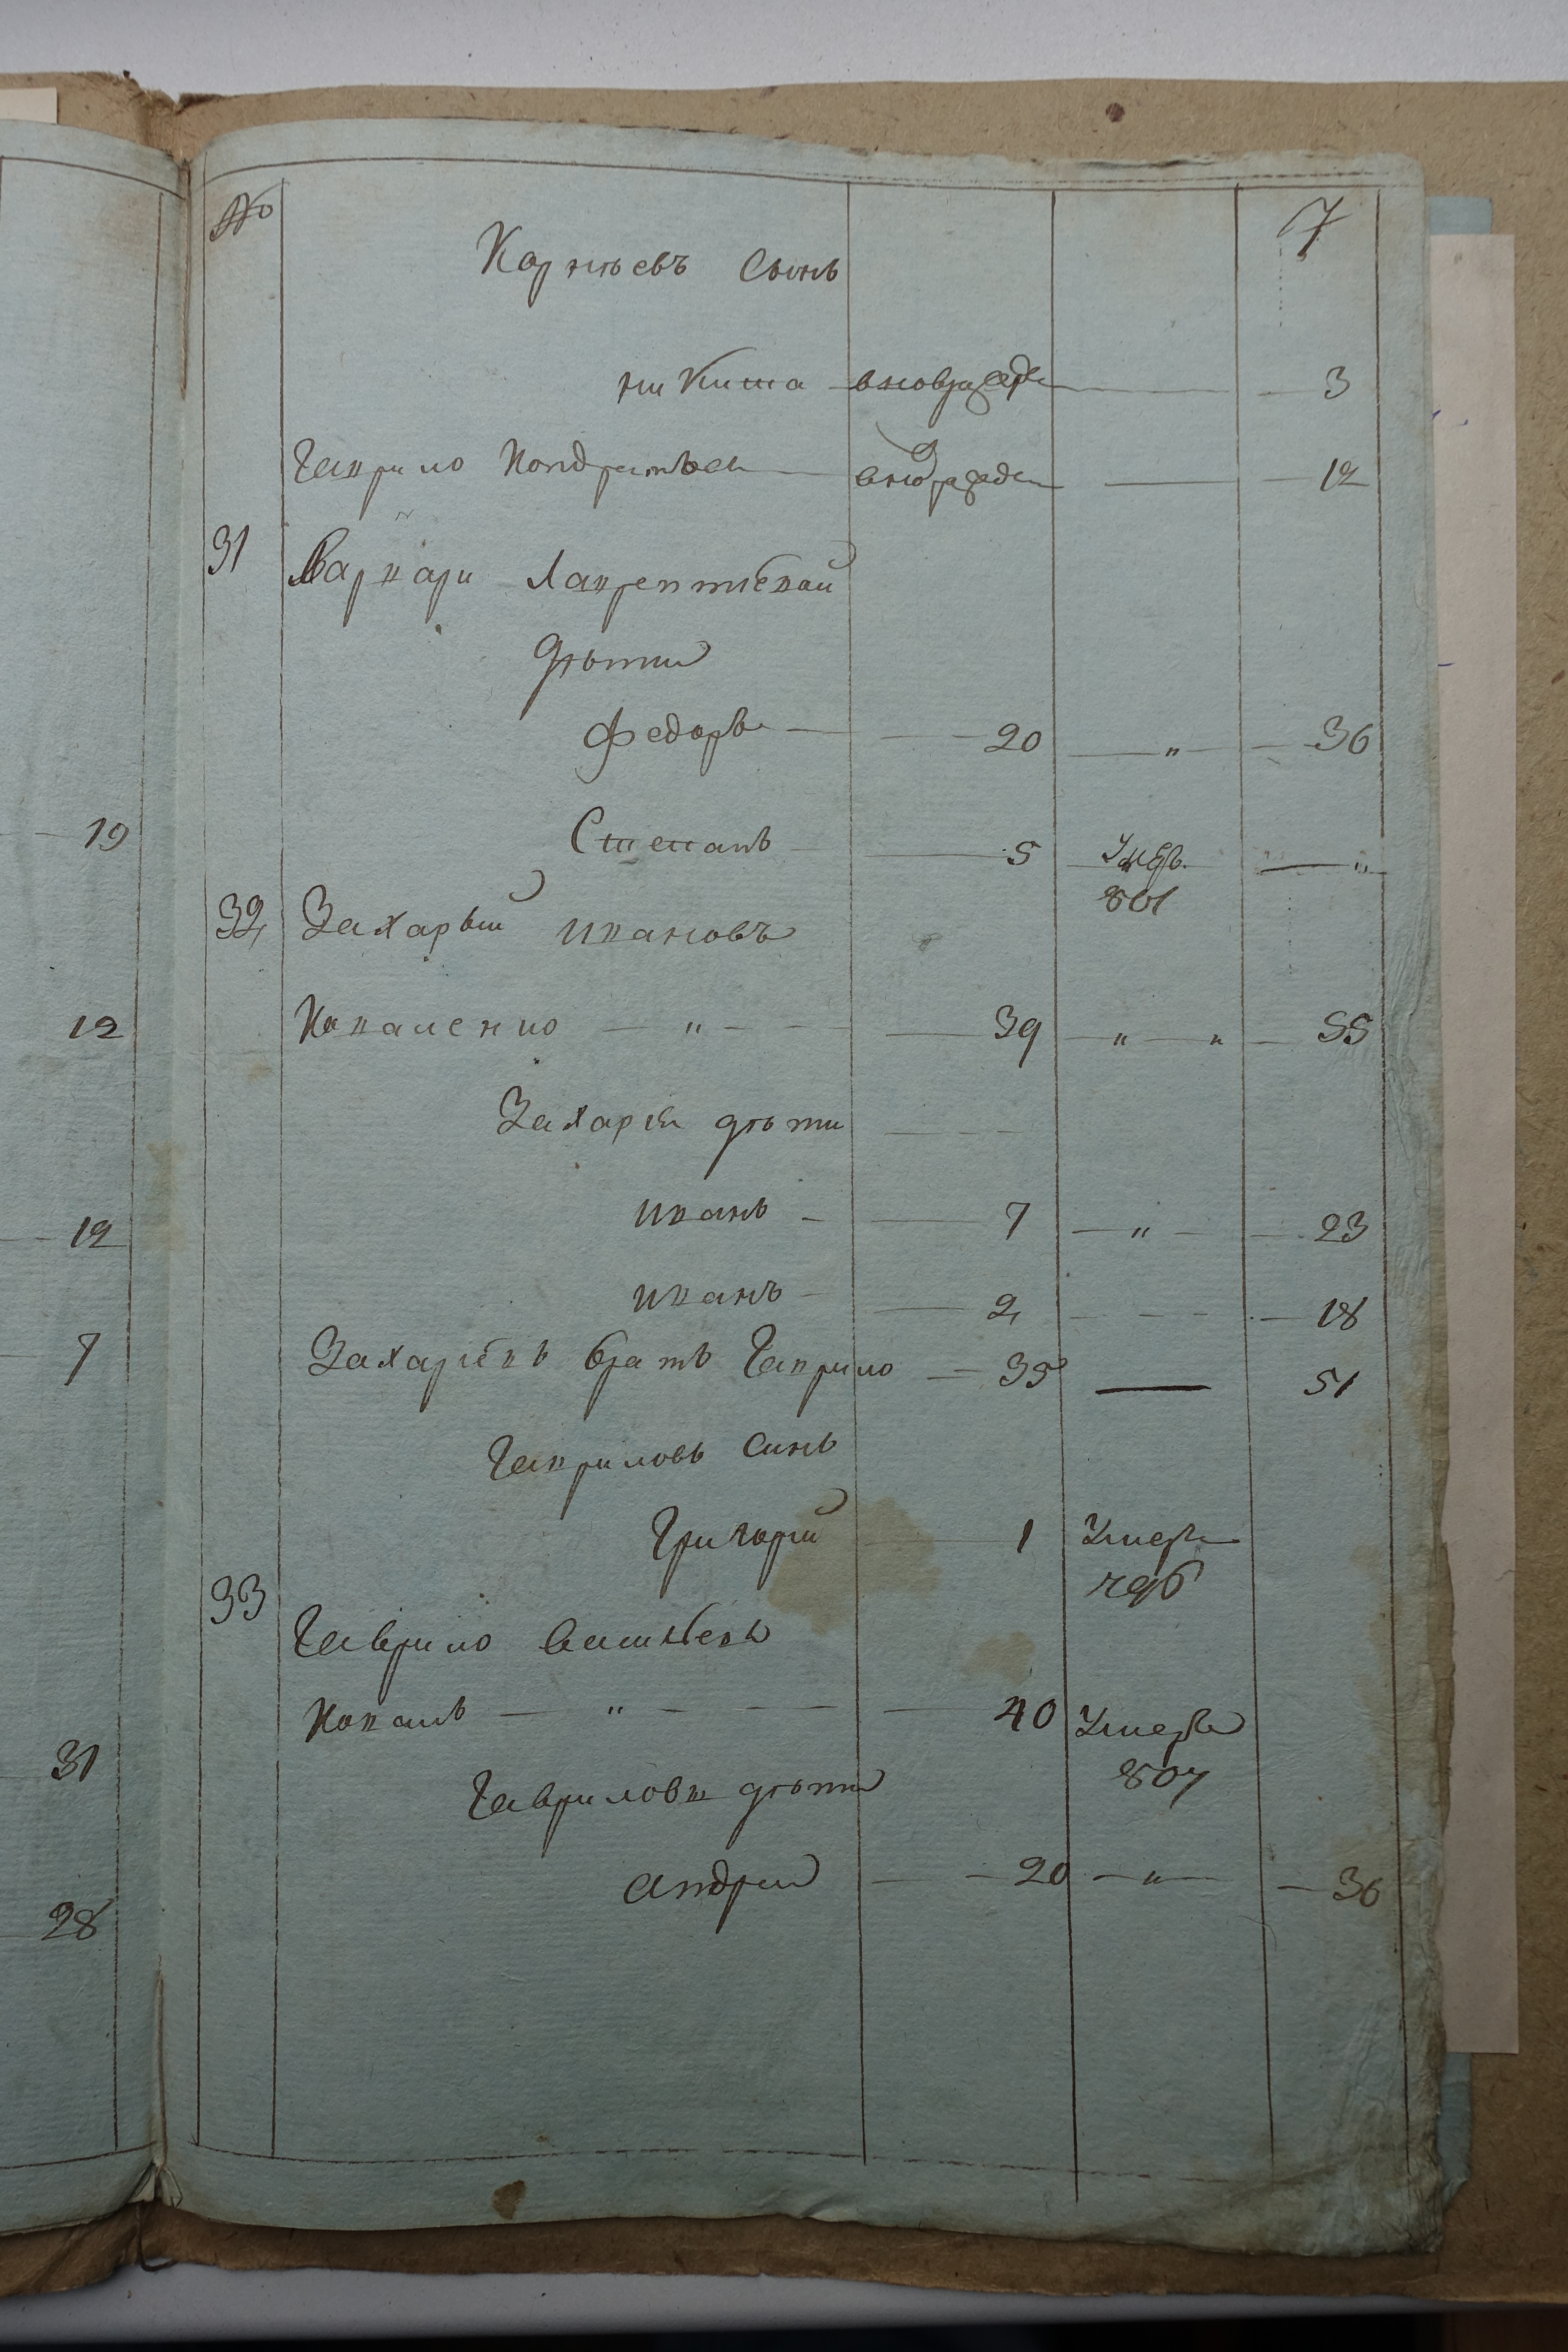 № 7
Карнѣевъ Сынъ
никита вновьрожде 3
Гаврило Кондратьев вновьрожде 12
31 Варвари Лаврентіевои
дѣти
Федоръ 20 " 36
Степанъ 5 Умеръ "
801
32 Захарьий Ивановъ
Коваленко " 39 " " 55
Захарія дѣти
иванъ 7 " 23
иванъ 2 18
Захаріевъ братъ Гаврило 35 51
Гавриловъ Синъ
Григорий 1 Умеръ
796
33
Гаврило Василіевъ
Коваль " 40 Умеръ
807
Гаврилови дѣти
андрей 20 " 36
19
12
12
7
31
28